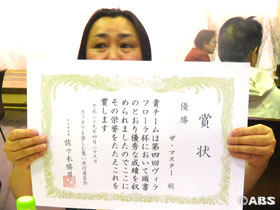 賞状
優勝
ザ・マスター 殿
貴チームは第四回ヴィラ
フローラ杯において頭書
のとおり優秀な成績を収
められましたのでここに
その栄誉をたたえこれを
賞します
平成二十九年四月二十九日
佐々木勝男
©ABS